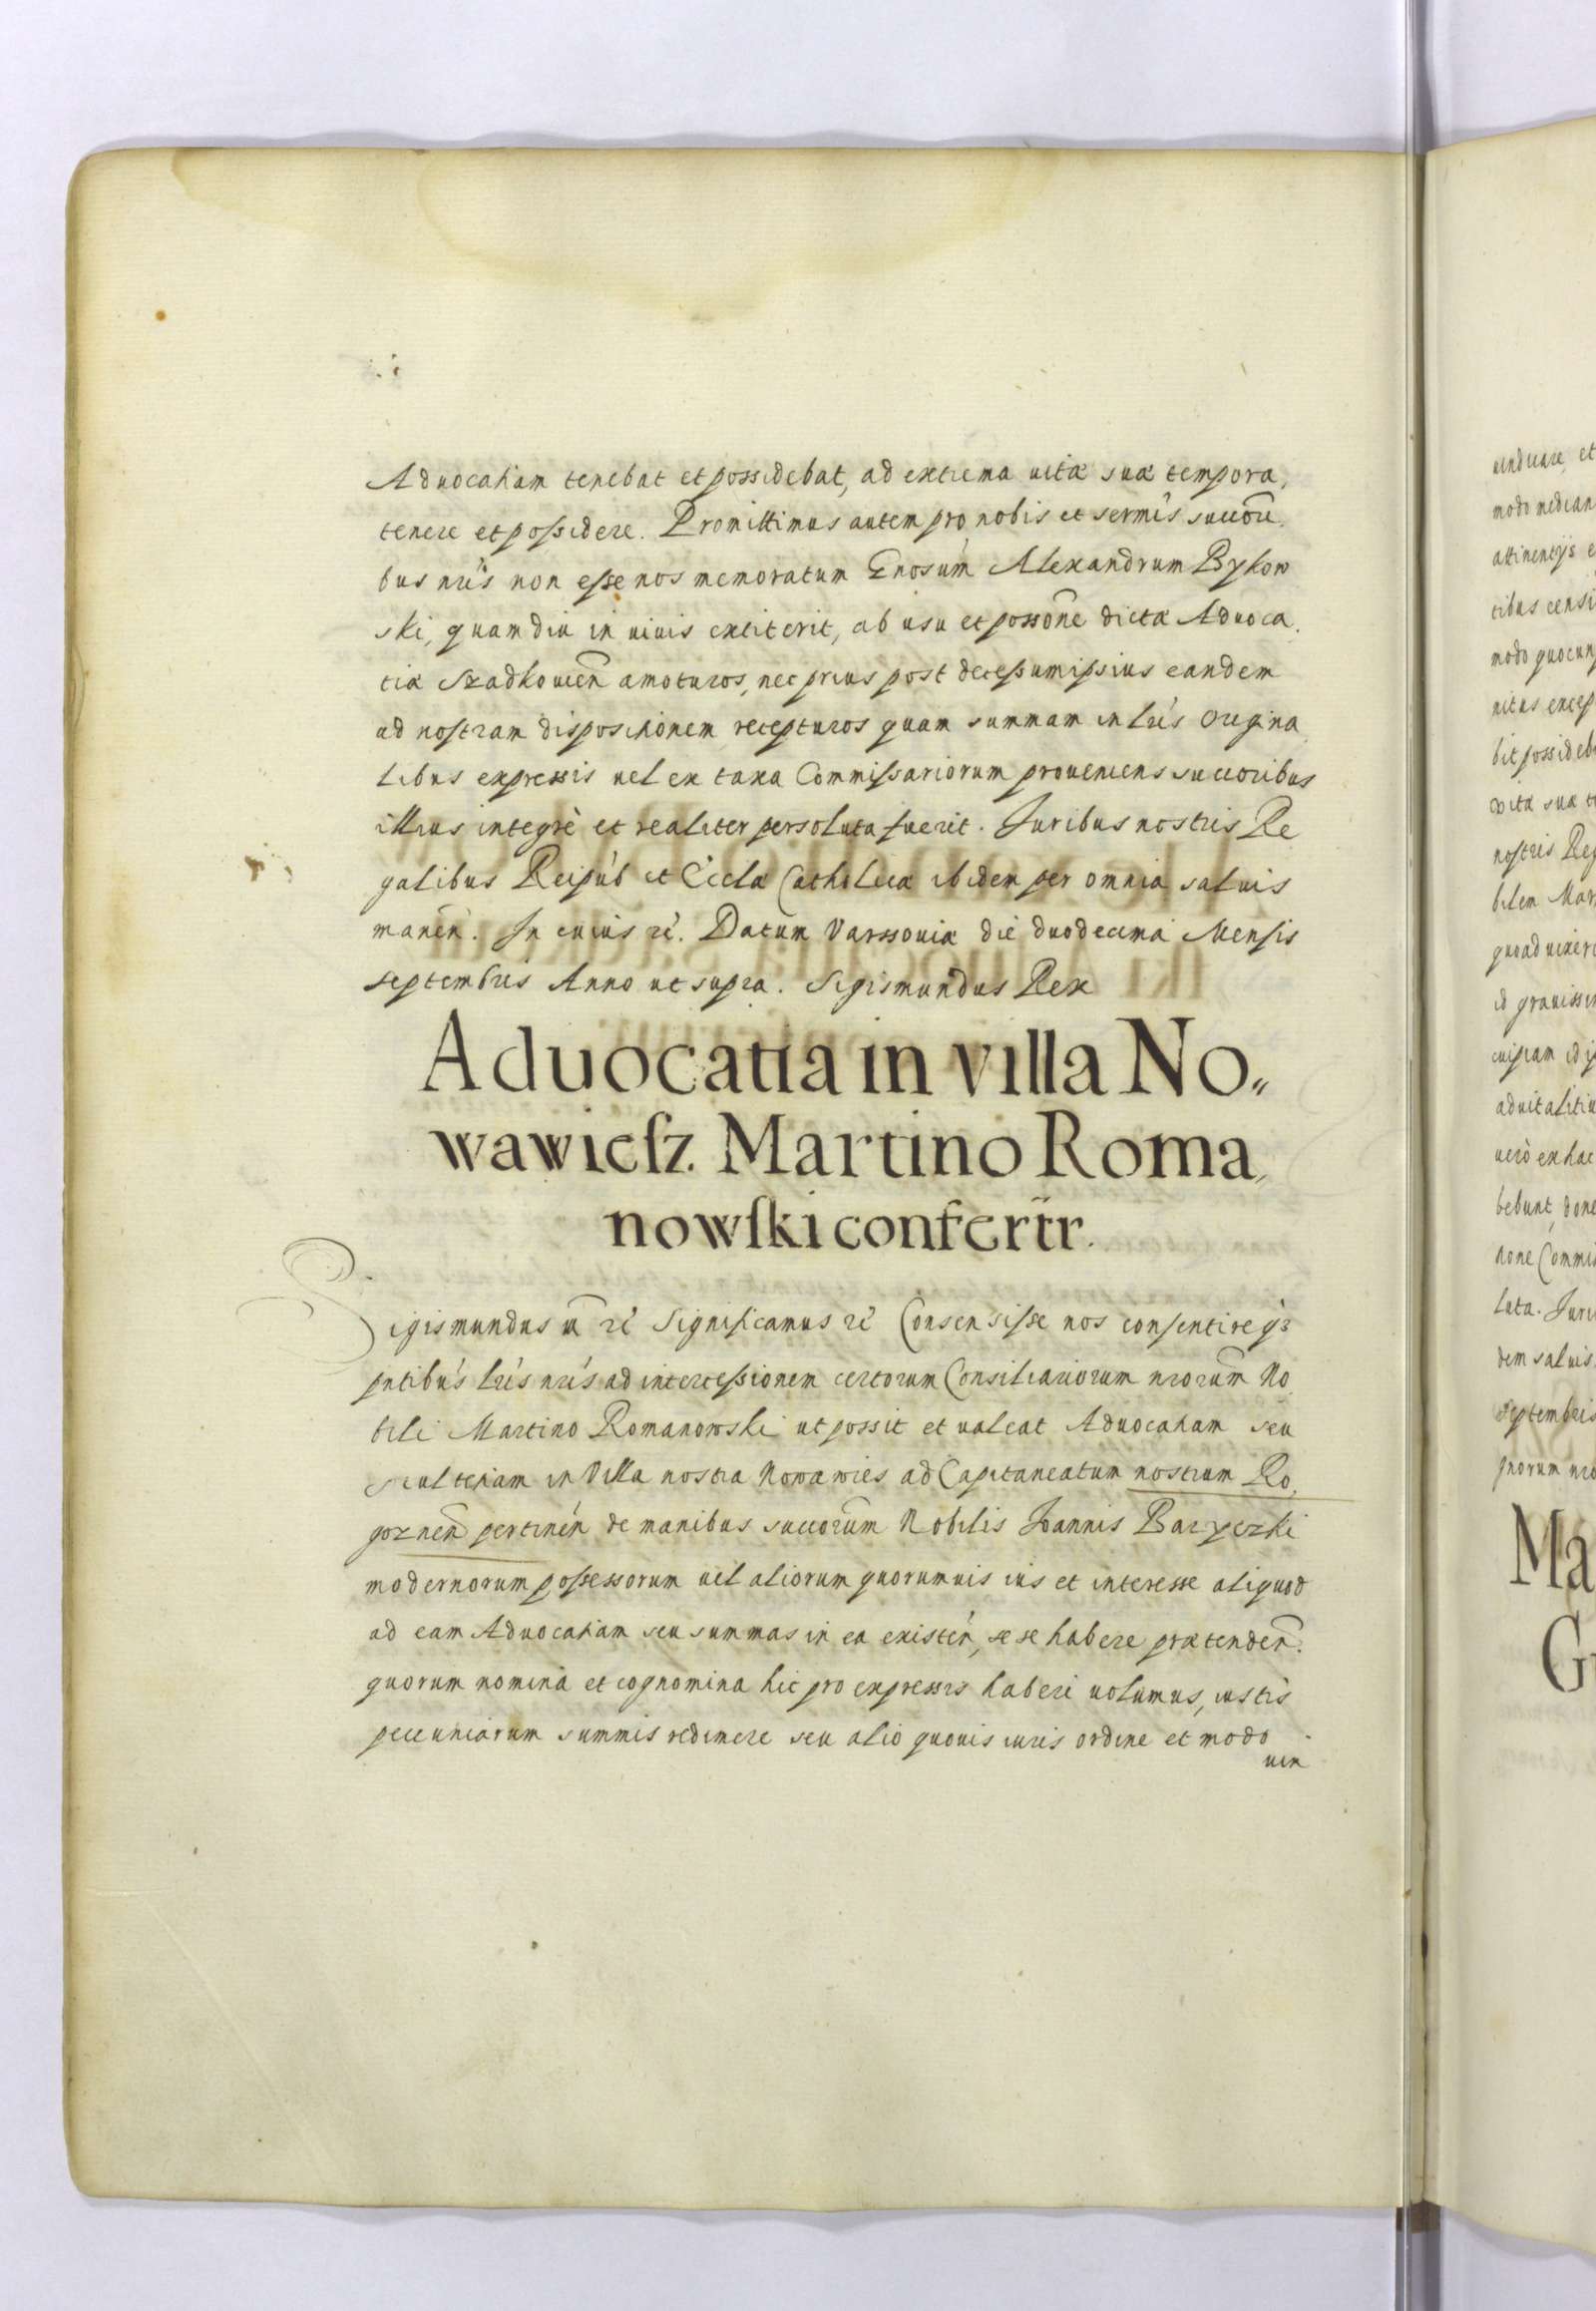 Aduocatiam tenebat et possidebat, ad extrema uitæ suæ tempora,
tenere et possidere. Promittimus autem pro nobis et sermis succori
bus nris non esse nos memoratum Gnosum Alexandrum Bykow
ski, quamdiu in uiuis extiterit, ab usu et possone dictæ Aduoca
tiæ Szadkouien amoturos, nec prius post decessum ipsius eandem
ad nostram dispositionem recepturos quam summam in lris origina
libus expressis uel ex taxa Commissariorum proueniens succoribus
illius integrè et realiter persoluta fuerit. Juribus nostris Re
galibus Reipub et Eccla Catholicæ ibidem per omnia saluis
manen. In cuius rei. Datum Varssouiæ die duodecima Mensis
septembris Anno ut supra. Sigismundus Rex
Aduocatia in villa No„
wawiesz. Martino Roma„
nowski confertr.
Sigismundus etc Significamus etc Consensisse nos consentireq3
pntibus lris nris ad intercessionem certorum Consiliariorum nrorum No
bili Martino Romanowski ut possit et ualeat Aduocatiam seu
scultetiam in Villa nostra Nowawies ad Capitaneatum nostrum Ro,
goznen pertinen de manibus succorum Nobilis Joannis Baryczki
modernorum possessorum uel aliorum quorumuis ius et interesse aliquod
ad eam Aduocatiam seu summas in ea existen, sese habere prætenden.
quorum nomina et cognomina hic pro expressis haberi uolumus, iustis
pecuniarum summis redimere seu alio quouis iuris ordine et modo
uin
uindicare, et
modo
attinentijs e
tibus censi
modo quocun
nitus excep
bit possideb
vitæ suæ t
nostris Reg
bilem Mar
quoad uixeri
id grauissi
aduitalitiu
uerò ex hac
bebunt, done
tione Commis
luta. Juri
dem saluis
septembris
gnorum nro
Ma
G